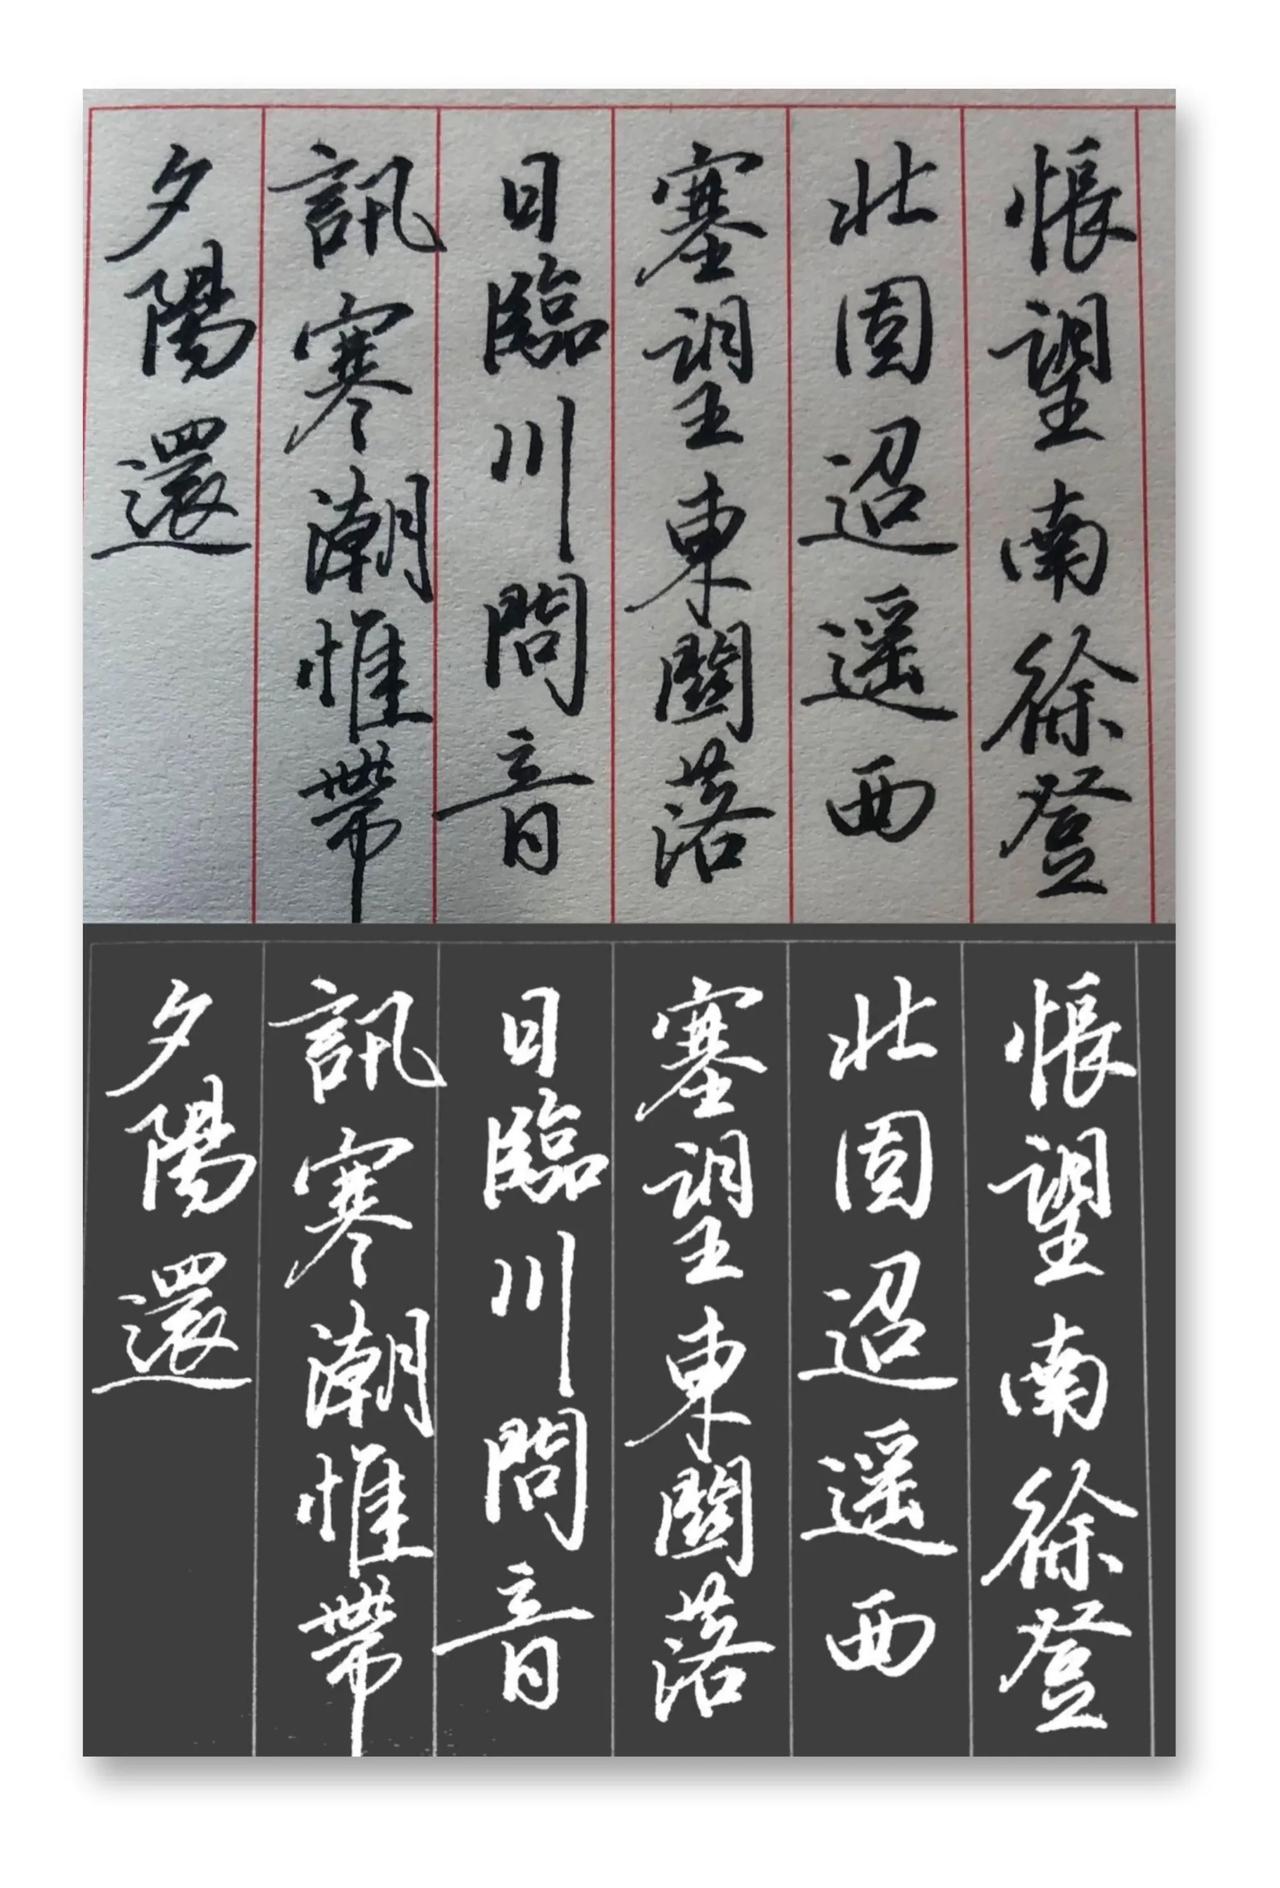 悵望南徐登
北固迢遥西
塞望東關落
日臨川問音
訊寒潮惟帶
夕陽還
悵望南徐登
北固迢遥西
塞望東關落
日臨川問音
訊寒潮惟帶
夕陽還